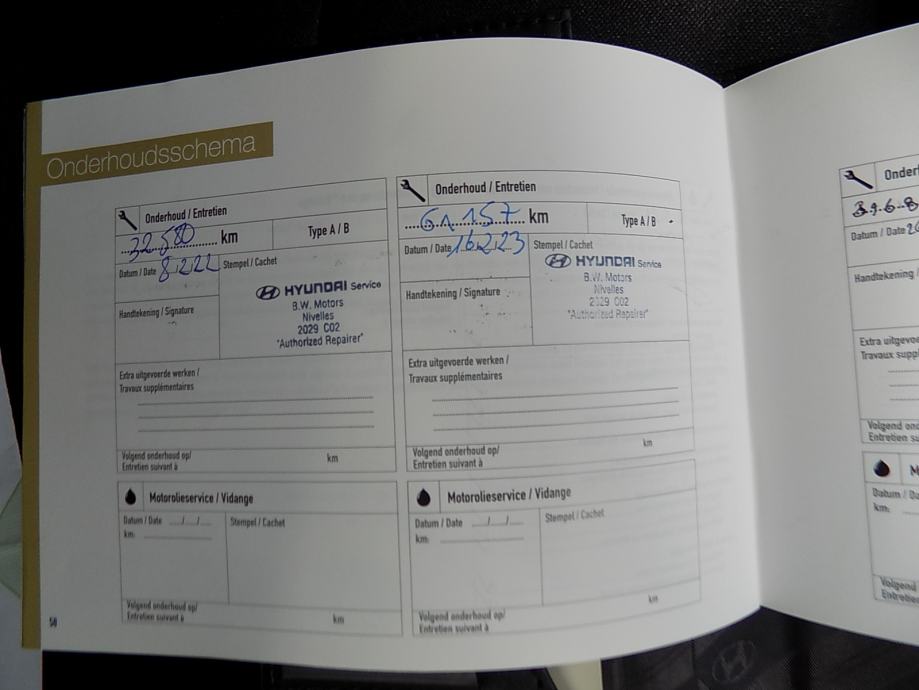 Onderhoudsschema
Onderhoud / Entretien
32.580 km
Type A / B
Datum / Date 8.2.22
Stempel / Cachet
HYUNDAI Service
B.W. Motors
Nivelles
2029 C02
"Authorized Repairer"
Handtekening / Signature
Extra uitgevoerde werken /
Travaux supplémentaires
Volgend onderhoud op/
Entretien suivant à
km
Motorolieservice / Vidange
Datum / Date ..../..../....
km:
Stempel / Cachet
Volgend onderhoud op/
Entretien suivant à
km
Onderhoud / Entretien
61.157 km
Type A / B
Datum / Date 16.2.23
Stempel / Cachet
HYUNDAI Service
B.W. Motors
Nivelles
2029 C02
"Authorized Repairer"
Handtekening / Signature
Extra uitgevoerde werken /
Travaux supplémentaires
Volgend onderhoud op/
Entretien suivant à
km
Motorolieservice / Vidange
Datum / Date ..../..../....
km:
Stempel / Cachet
Volgend onderhoud op/
Entretien suivant à
km
Datum / Date
Handtekening
Travaux
Volgend
Entretien
km:
Volgend